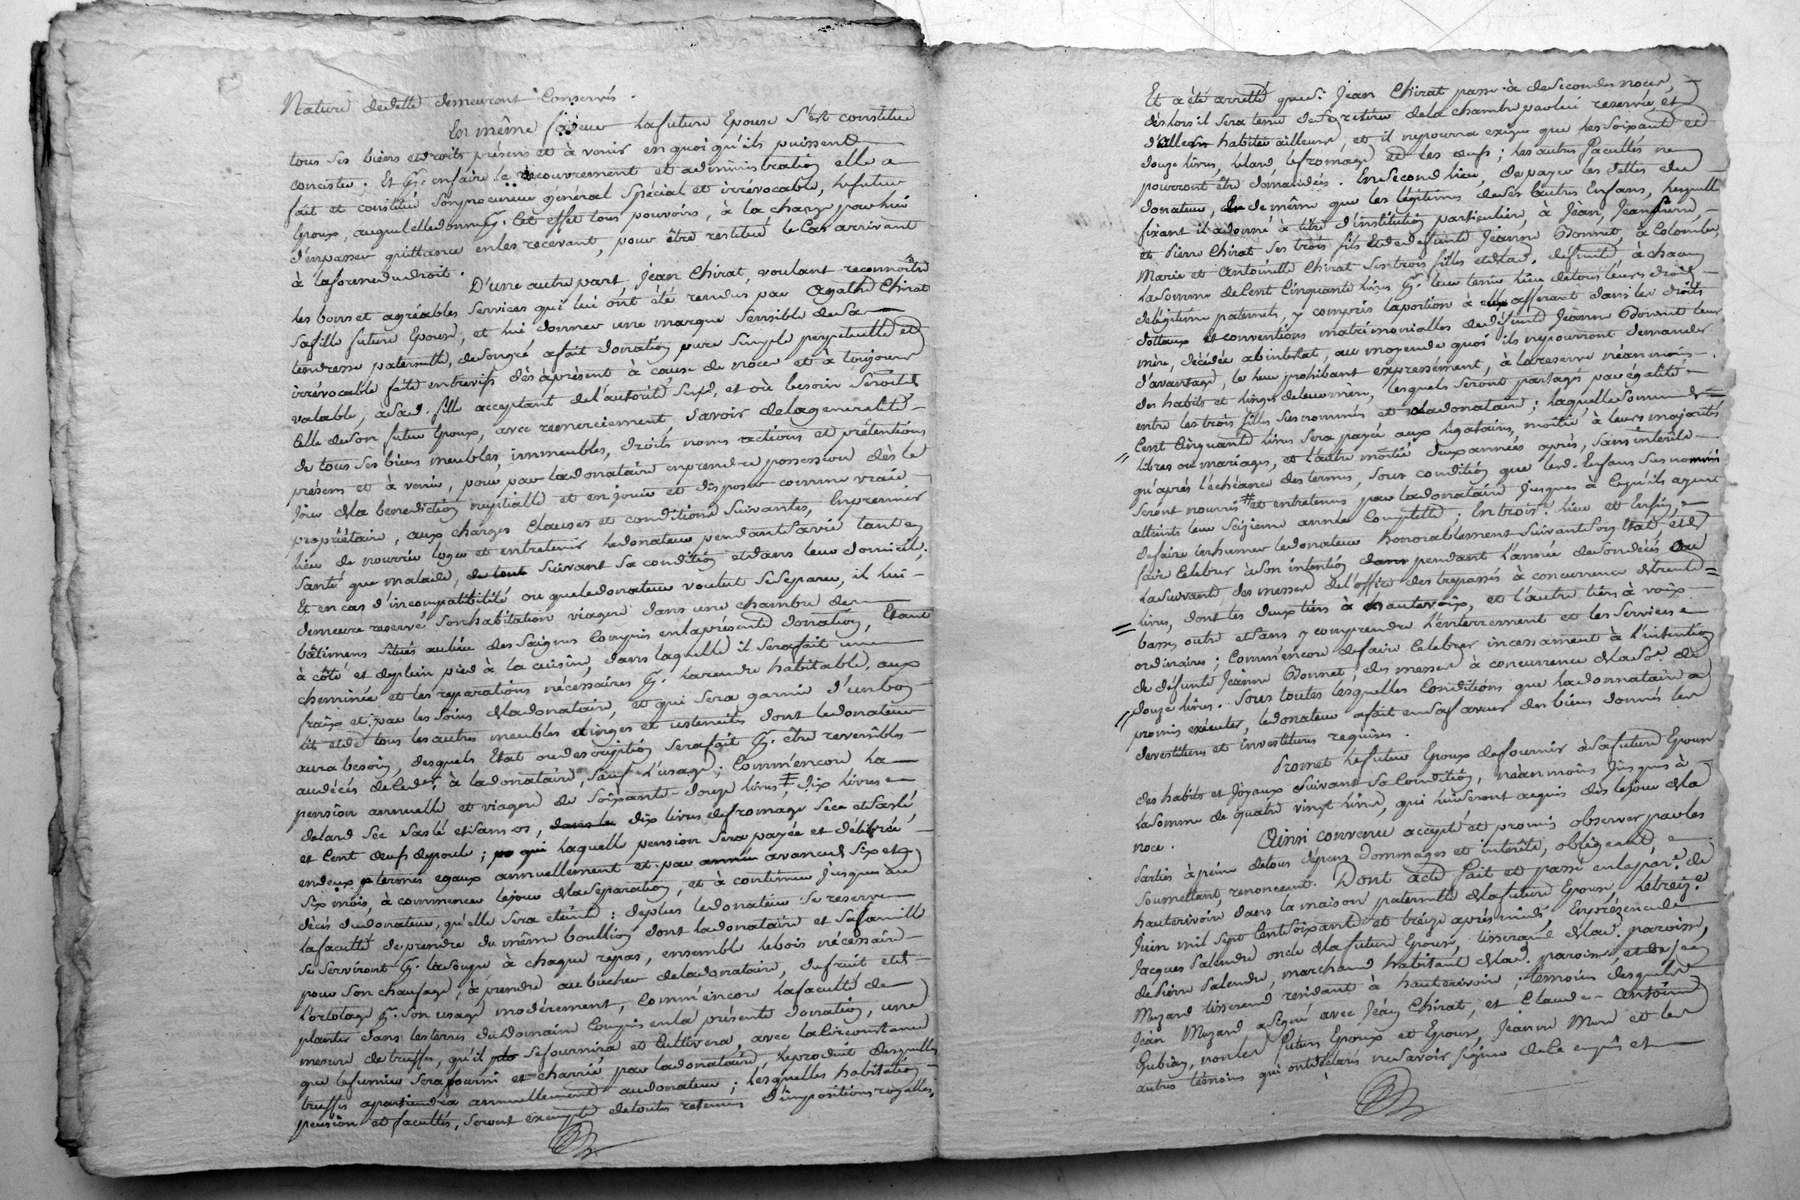 Nature de delle demeurent Conservés.
En même faveur La future Epouse S'est constitué
tous ses biens et droits présens et à venir en quoi qu'ils puissent
concister. Et pr. en faire le recouvrement et administration elle a
fait et constitué son procureur général spécial et irrévocable, le futur
Epoux, auquel elle donne pr. Cet effet tous pouvoirs, à la charge par lui
d'en passer quittance en les recevant, pour être restitué le Cas arrivant
à la forme du droit.
D'une autre part, Jean Chirat, voulant reconnoître
les bons et agréables Services qui lui ont été rendus par Agathe Chirat
sa fille future Epouse, et lui donner une marque Sensible de Sa
tendresse paternelle, de son gré a fait donation pure Simple perpetuelle et
irrévocable faite entrevifs dès à présent à cause de noce et à toujours
valable, à sad. fille acceptant de l'autorité Susd. et où besoin Seroit de
Celle de Son futur Epoux, avec remerciement, Savoir de la généralité
de tous Ses biens meubles, immeubles, droits noms ractions et prétentions
présens et à venir, pour par la donataire en prendre possession dès le
jour de la benediction nuptialle et en jouir et disposer comme vraie
propriétaire, aux charges Clauses et conditions Suivantes, En premier
lieu de nourrir loger et entretenir le donateur pendant Sa vie tant en
Santé que malade, de tout Suivant Sa condition et dans leur domicile,
Et en cas d'incompatibilité ou que le donateur voulut Se Séparer, il lui
demeure reservé Son habitation viagere dans une chambre des
bâtimens Situés au lieu des Saignes Compris en la présente donation, Etant
à côté et de plein pied à la cuisine, dans laquelle il Sera fait une
cheminée et les reparations nécessaires pr. la rendre habitable, aux
fraix et par les soins de la donataire, et qui sera garnie d'un bon
lit et de tous les autres meubles et linges et ustenciles dont le donateur
aura besoin, desquels Etat ou description Sera fait pr. être reversibles
au décés de led. à la donataire, Sauf L'usage; Comm'encore La
pension annuelle et viagere de Soixante-douze livres, dix livres
de lard Sec Salé et Sans os, dans le dix livres de fromage Sec et Salé,
et Cent œufs de poule; po qui laquelle pension Sera payée et délivrée
en deux p termes egaux annuellement et par année avance de Six et
Six mois, à commencer le jour de la Separation, et à continuer jusques au
décés du donateur, qu'elle Sera eteinte: de plus le donateur Se reserve
la faculté de prendre du même bouillon dont la donataire et Sa famille
Se Serviront pr. la Soupe à chaque repas, ensemble le bois nécessaire
pour Son chaufage, à prendre au bucher de la donataire, du fruit et de
l'ortolage pr. Son usage modérément, Comm'encore La faculté de
planter dans les terres du domaine Compris en la présente donation, une
mesure de truffes, qu'il Se fournira et Cultivera, avec la Circonstance
que le fumier Sera fourni et charrié par la donataire, Le produit desquelles
truffes apartiendra annuellement au donateur; Lesquelles habitation
pension et facultés, Seront exempte de toutes retenues d'impositions royalles,
Et a été arretté que Si Jean Chirat passe à de Secondes noces,
dès lors il Sera tenu de Se retirer de la chambre par lui reservée, et
d'aller habiter ailleurs, et il ne pourra exiger que les Soixante et
douze livres, le lard le fromage et les œufs; Les autres facultés ne
pourront être demandées. En Second lieu, de payer les dettes du
donateur, de même que les légitimes de Ses autres Enfans, lesquels
fixant il a donné à titre d'institution particuliere, à Jean, Jean Pierre,
et Pierre Chirat Ses trois fils et de defunte Jeanne Bonnet, à Colombe
Marie et Antoinette Chirat Ses trois filles et de lad. defunte, à chacun
La Somme de Cent Cinquante livres pr. leur tenir lieu de tous leurs droits
de légitime paternels, y compris la portion à eux afferant dans les droits
dottaux et conventions matrimonialles de défunte Jeanne Bonnet leur
mère, décédée abintestat, au moyen de quoi ils ne pourront demander
d'avantage, le leur prohibant expressément, à la reserve néanmoins
des habits et linges de leur mère, lesquels Seront partagés par égalité
entre les trois filles Ses nommées et la donataire; laquelle Somme de
Cent Cinquante livres Sera payée aux légataires, moitié à leurs majorités
libres ou mariages, et l'autre moitié deux années après, Sans intérêts
qu'après l'échéance des termes, Sous condition que lesd. Enfans Sus nommés
Seront nourris et entretenus par la donataire jusques à ce qu'ils ayent
atteints leur Seizieme année Complette; En troise. lieu et Enfin,
de faire inhumer le donateur honorablement Suivant Son Etat et de
faire Celebrer à Son intention dans pendant l'année de Son décés ou
La Suivante des messes de l'office des trepassés à concurrence de trente
livres, dont les deux tiers à hautevoix, et l'autre tiers à voix
basse, outre et Sans y comprendre l'enterrement et les Services
ordinaires; Comm'encore de faire Celebrer incessament à l'intention
de défunte Jeanne Bonnet, des messes à concurrence de la Soe. de
douze livres. Sous toutes lesquelles Conditions que la donataire a
promis exécuter, le donateur a fait en Sa faveur des biens donnés les
devestitures et investitures requises.
Promet le futur Epoux de fournir à Sa future Epouse
des habits et Joyaux Suivant Sa Condition, néanmoins jusques à
la Somme de quatre vingt livres, qui lui Seront acquis dès le jour de la
noce. Ainsi convenu accepté et promis observer par les
Parties à peine de tous dépens dommages et intérêts, obligeant
Soumettant, renonceant. Dont acte fait et passé en la pare. de
hauterivoire dans la maison paternelle de la future Epouse, le treize.
Juin mil Sept Cent Soixante et treize après midi, En présence de
Jacques Palendre oncle de la future Epouse, tisserand de lad. paroisse,
de Pierre Palendre, marchand habitant de lad. paroisse, et de Jean
Muzard tisserand residant à hauterivoire; témoins desquels
Jean Muzard a Signé avec Jean Chirat, et Claude-Antoine
Gubian, non les futurs Epoux et Epouse, Jeanne Mure et les
autres témoins qui ont déclaré ne Savoir Signer de Ce enquis et